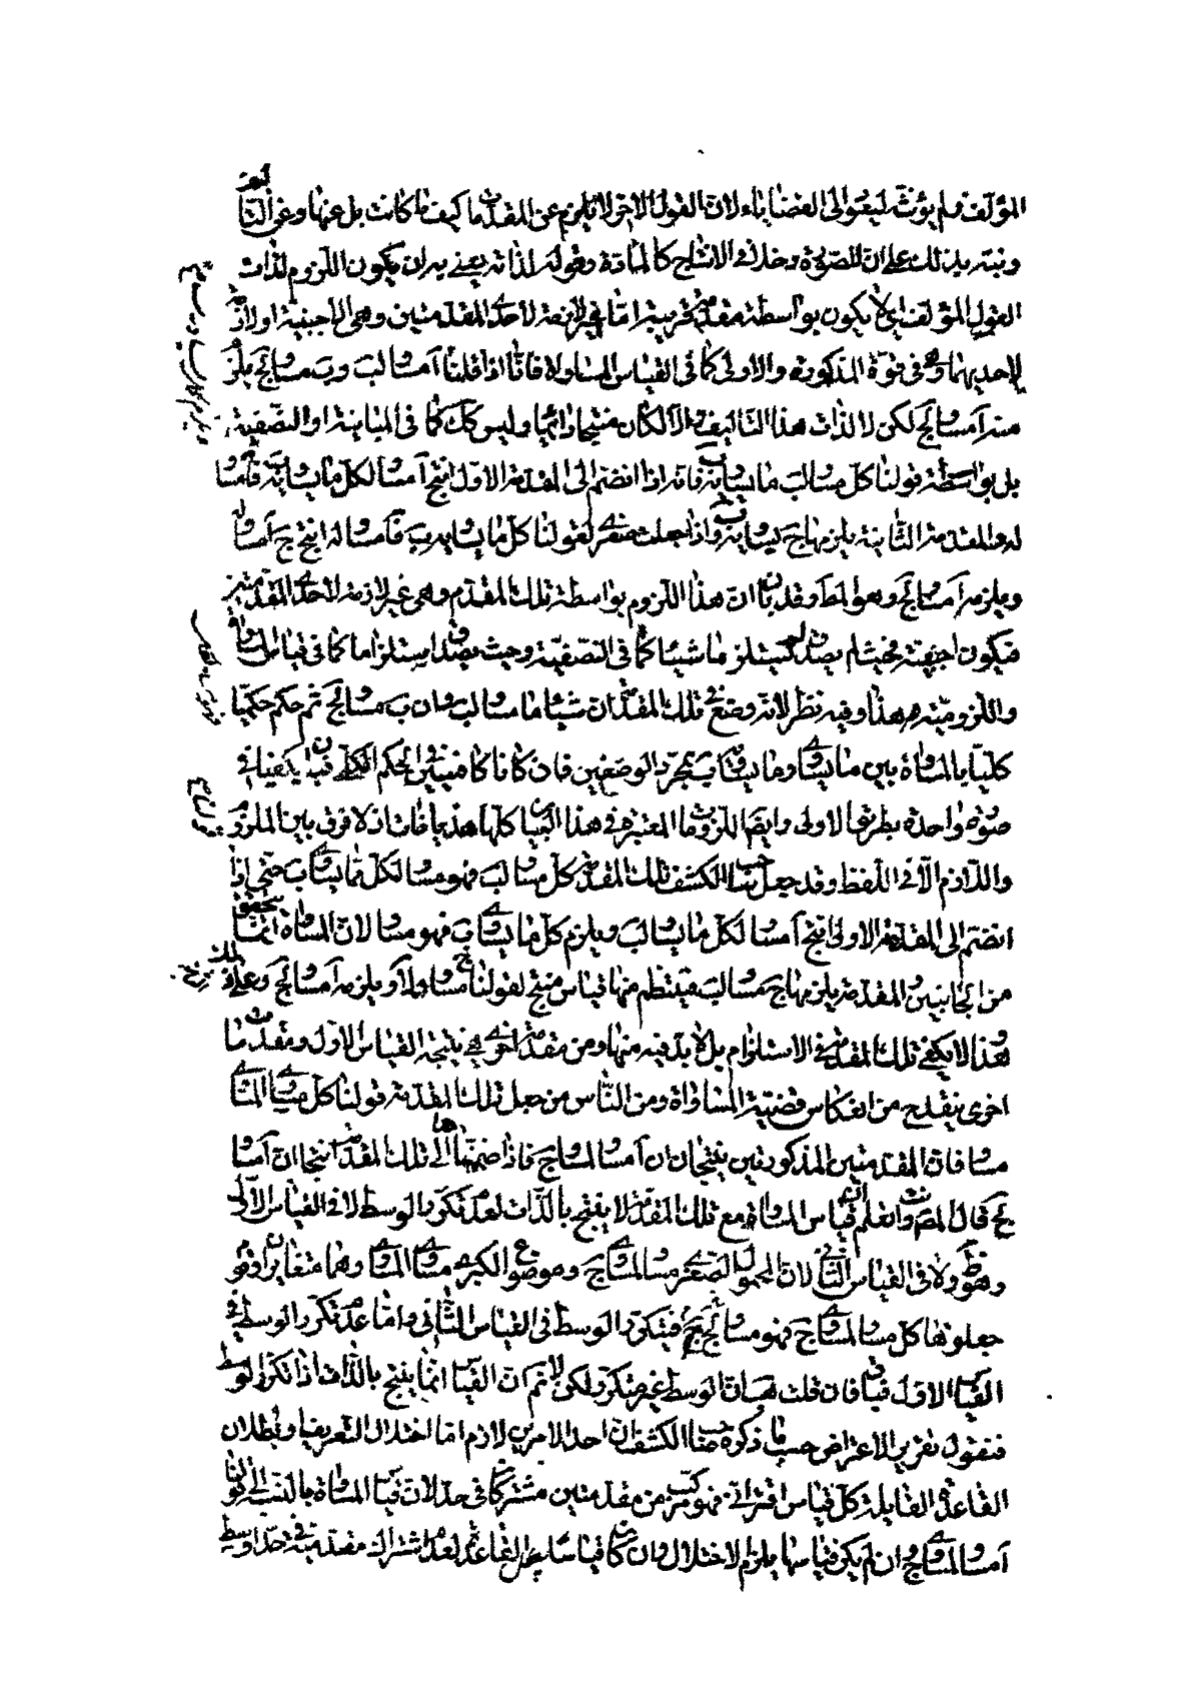 المؤلف ولم يؤنثه ليعود الى القضايا لان القول الاخر لا يلزم عن المقدمات كيف ما كانت بل عنها وعن التأليف
ونبه بذلك على ان للصورة دخلا فى الانتاج كالمادة وقوله لذاته يعنى به ان يكون اللزوم لذات
القول المؤلف اى لا يكون بواسطة مقدمة غريبة اما غير لازمة لاحدى المقدمتين وهى الاجنبية او لازمة
لاحديهما وهى فى قوة المذكورة والاولى كما فى القياس المساواة فانا اذا قلنا آ مساو لب وب مساو لج يلزم
منه آ مساو لج لكن لا لذات هذا التأليف والا لكان منتجا دائما وليس كك كما فى المباينة او النصفية
بل بواسطة قولنا كل مساو لب مساو لما يساويه ب فانه اذا انضم الى المقدمة الاولى انتج آ مساو لكل ما يساويه ب فآ مساو
له والمقدمة الثانية يلزمها ج يساويه ب واذا جعلت صغرى لقولنا كل ما يساويه ب فآ مساو له انتج ج آ مساو له
ويلزمه آ مساو لج وهو المط وقد بان ان هذا اللزوم بواسطة تلك المقدمة وهى غير لازمة لاحدى المقدمتين
فيكون اجنبية فحيث لم يصدق لم يستلزم شيئا كما فى النصفية وحيث يصدق استلزاما كما فى قياس المساواة
واللزومية هذا وفيه نظر لانه وضع فى تلك المقدمة ان شيئا ما مساو لب وان ب مساو لج ثم حكم حكما
كليا بالمساواة بين ما يساوى وما يساويه ب بمجرد الوضعين فان كانا كافيين فى الحكم الكلى فبان يكفيا فى
صورة واحدة بطريق الاولى وايضا اللزومات المعتبرة فى هذا البيان كلها هذيانات اذ لا فرق بين الملزوم
واللازم الا فى اللفظ وقد جعل صاحب الكشف تلك المقدمة كل مساو لب فهو مساو لكل ما يساوى ب حتى اذا
انضم الى المقدمة الاولى انتج آ مساو لكل ما يساوى ب ويلزم كل ما يساوى ب فهو مساو لآ لان المساواة انما يتحقق
من الجانبين والمقدمة يلزمها ج مساو لب فينتظم منها قياس منتج لقولنا ج مساو لآ ويلزمه آ مساو لج وعلى
هذا لا يكفى تلك المقدمة فى الاستلزام بل لا بد فيه منها ومن مقدمة اخرى هى نتيجة القياس الاول ومقدمات
اخرى ينقدح من انعكاس قضية المساواة ومن الناس من جعل تلك المقدمة قولنا كل مساوى المساوى
مساو فان المقدمتين المذكورتين ينتجان ان آ مساو لمساوى ج فاذا ضممناها الى تلك المقدمة انتجا ان آ مساو
لج فقال المص وانت تعلم ان قياس المساواة مع تلك المقدمة لا ينتج بالذات لعدم تكرر الوسط لا فى القياس الاول
وهو ظ ولا فى القياس الثانى لان محمول الصغرى مساو لمساوى ج وموضوع الكبرى مساوى المساوى وهما متغايران وقد
جعلوها كل مساو لمساوى ج فهو مساو لج فيتكرر الوسط فى القياس الثانى واما عدم تكرر الوسط فى
القياس الاول فباق فان قلت هب ان الوسط غير متكرر ولكن لا نم ان القياس انما ينتج بالذات اذا تكرر الوسط
فنقول تقرير الاعتراض حسب ما ذكره صاحب الكشف ان احد الامرين لازم اما اختلال التعريف او بطلان
القاعدة القايلة كل قياس اقترانى فهو مركب من مقدمتين مشتركتين فى حد لان قياس المساواة بالنسبة الى قولنا
آ مساو لمساوى ج ان لم يكن قياسا يلزم الاختلال وان كان قياسا بطل القاعدة لعدم اشتراك مقدمتيه فى حد اوسط